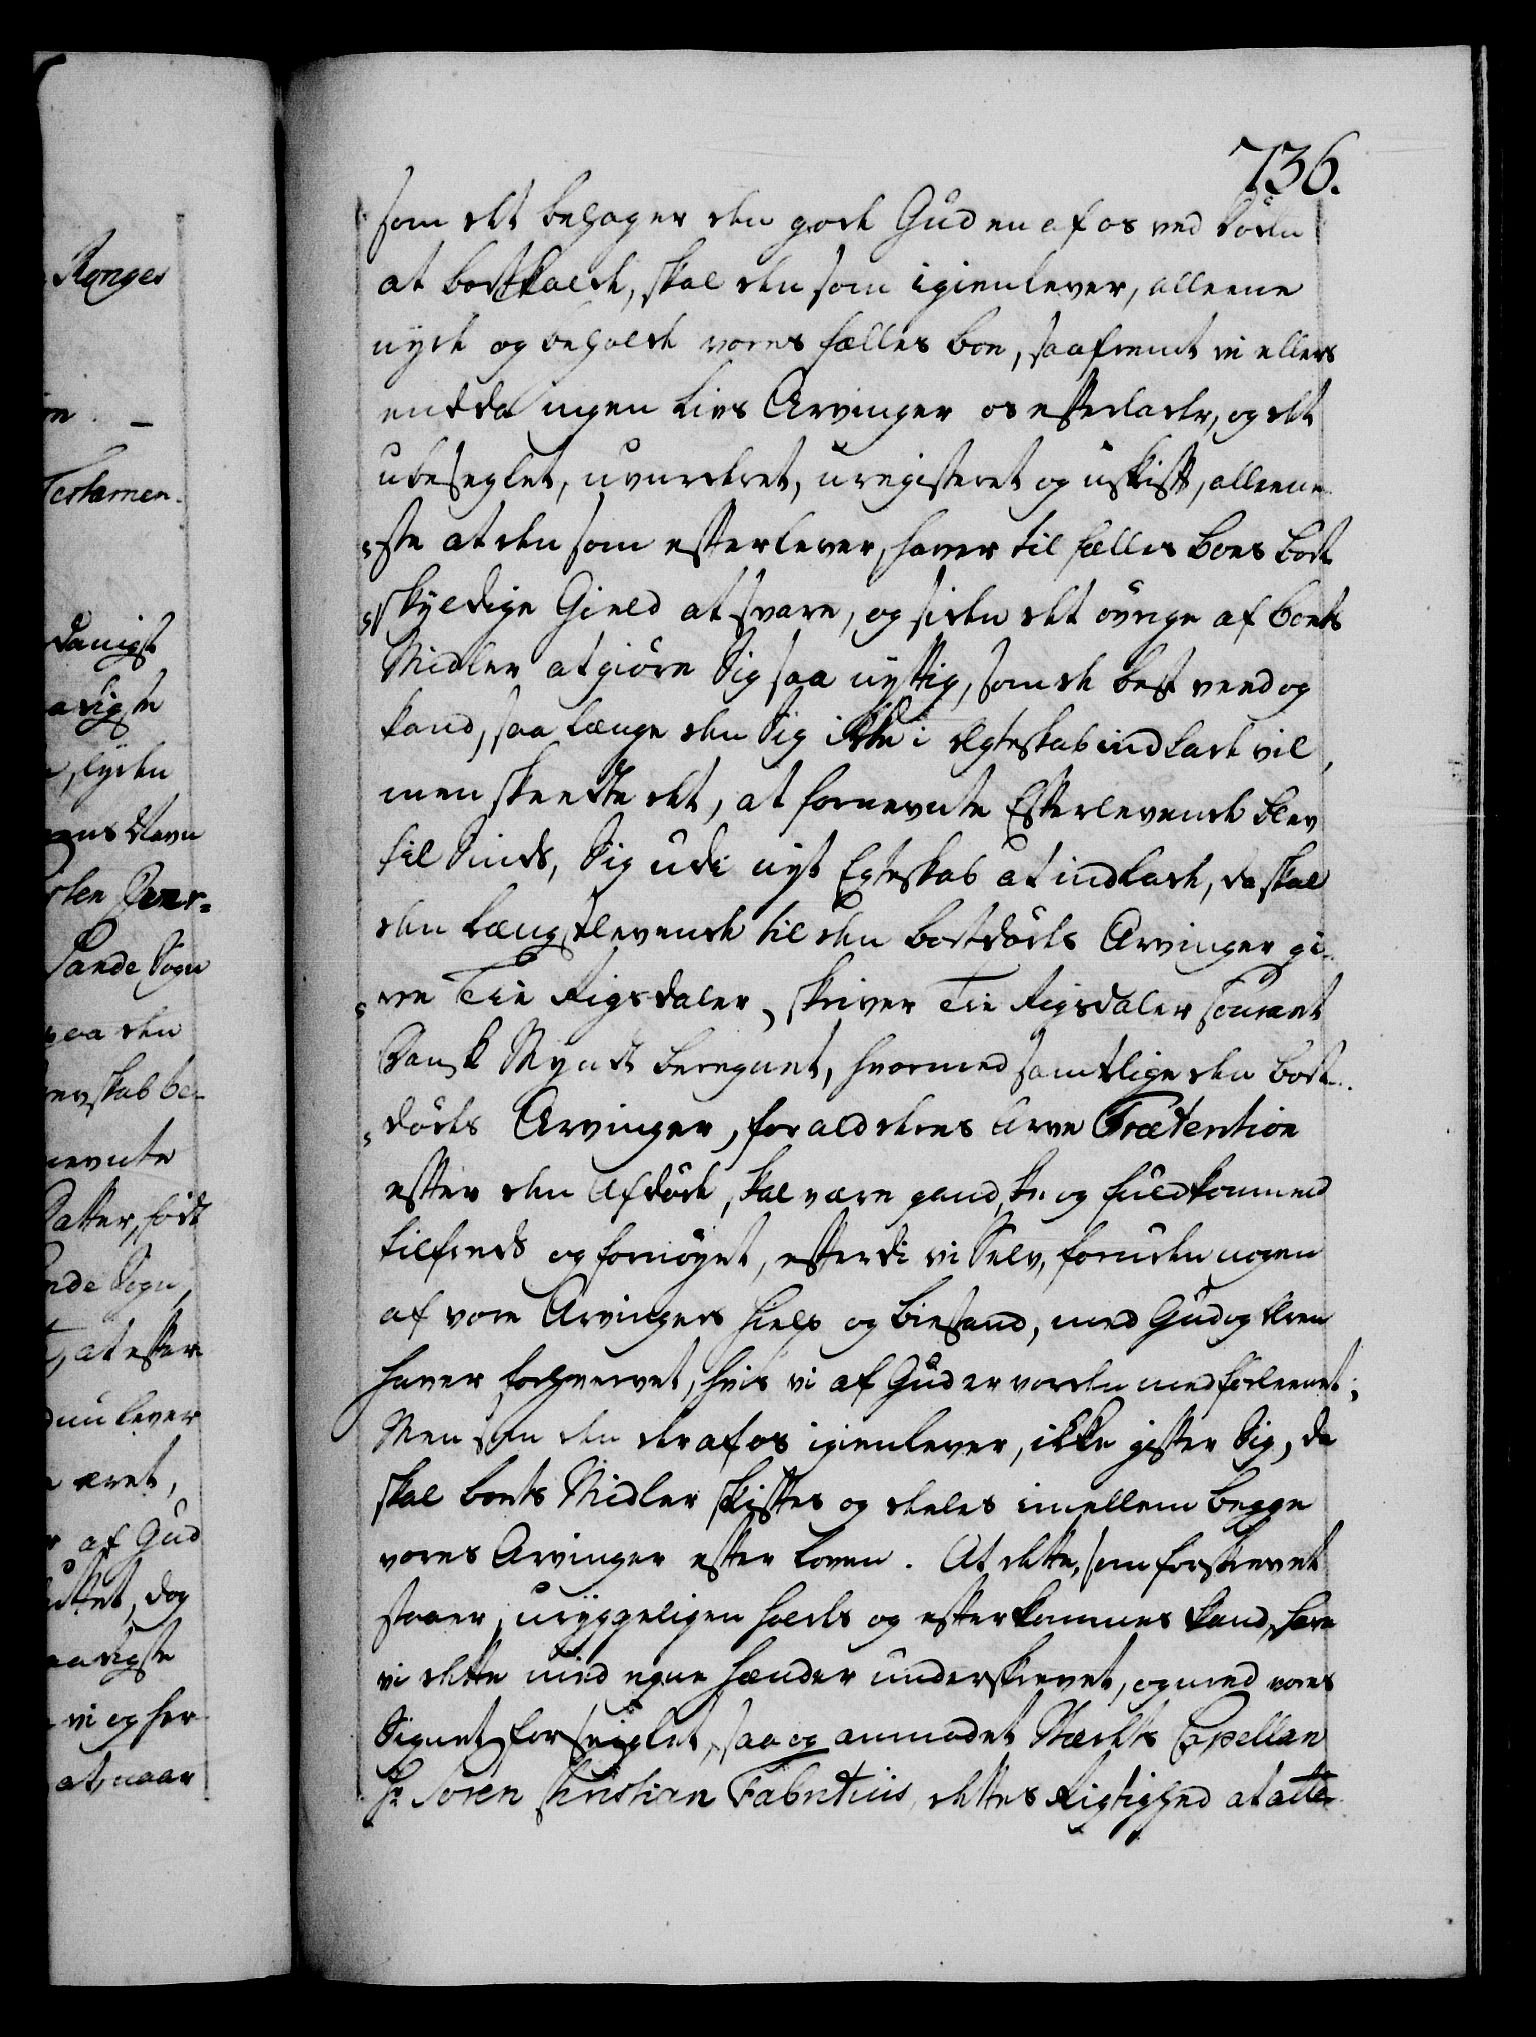 736.
som det behager den gode Gud en af os ved Døden
at bortkalde, skal den som igienlever, alleene
nyde og beholde voris fælles Boe, saafremt vi ellers
endda ingen Livs Arvinger os efterlader, og det
ubeseglet, uvurderet, uregisteret og uskift, alleene-
ste at den som efterlever, haver til fælles Boes bort
skyldige Gield at svare, og siden det øvrige af Boets
Midler at giøre Sig saa nyttig, som de best veed og
kand, saa længe den Sig ikke i Ægteskab indlade vil,
men skeedte det, at fornevnte Efterlevende blev
til Sinds, Sig udi nyt Egteskab at indlade, da skal
den længstlevende til den bortdødes Arvinger gi-
ve Tie Rigsdaler, skriver Tie Rigsdaler Courant
Dansk Myndt beregnet, hvormed samtlige den bort-
dødes Arvinger, for ald deres Arve Prætention
efter den Afdøde, skal være gandske og fuldkommed
tilfreds og fornøyet, efterdi vi Selv, foruden nogen
af vore Arvingers Hielp og Biestand, med Gud og Æren
haver forhvervet, hvis vi af Gud er vorden med forleenet;
Men som den der af os igienlever, ikke gifter Sig, da
skal Boets Midler skiftes og deeles imellem begge
vores Arvinger efter Loven. At dette, som forskrevet
staaer, uryggeligen holdes og efterkommes kand, have
vi dette med egne Hænder underskrevet, og med vores
Signet forseiglet, saa og anmodet Stædets Capellan
Hr Søren Christian Fabritius, dettes Rigtighed at atte-
Konges
Testamen-
danigst
Sande Sogn
paa den
nevnte
Datter, født
Sogn,
at efter
nu lever
æret,
af Gud
dog
vi og her
at, naar